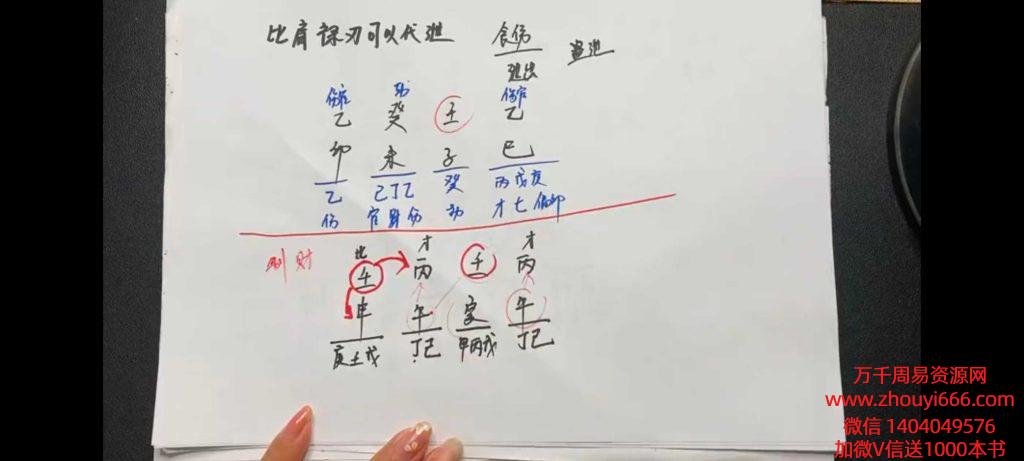 比肩禄刃可以代泄 食伤
泄出
伤官 劫 伤官
乙 癸 壬 乙
卯 未 子 巳
乙 己丁乙 癸 丙戊庚
伤 官财伤 劫 才七偏印
比 才 才
劫财 壬 丙 壬 丙
申 午 亥 午
庚壬戊 丁己 甲丙戊 丁己
万千周易资源网
www.zhouyi666.com
微信 1404049576
加微V信送1000本书